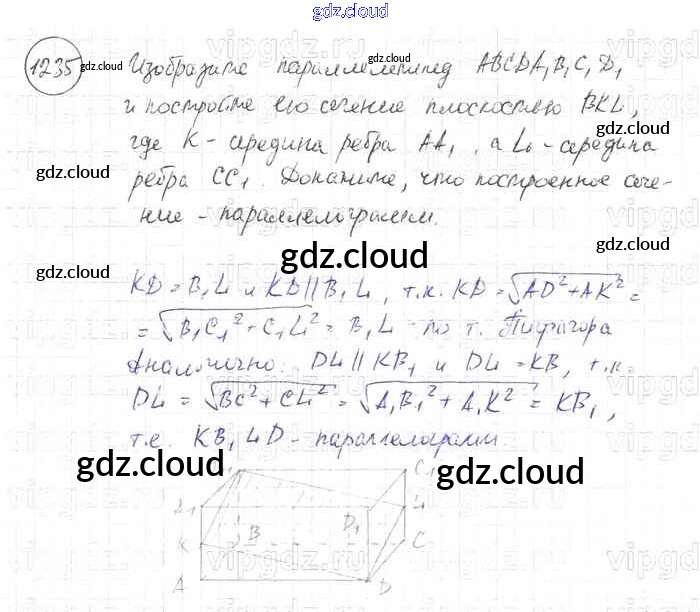 gdz.cloud
1235 gdz.cloud Изобразите параллелепипед ABCDA₁B₁C₁D₁
и постройте его сечение плоскостью BKL,
где K - середина ребра AA₁, а L - середина
ребра CC₁. Докажите, что построенное сече-
ние - параллелограмм.
gdz.cloud
gdz.cloud
gdz.cloud
gdz.cloud
gdz.cloud
gdz.cloud
KD = B₁L и KD || B₁L, т.к. KD = √AD² + AK² =
= √B₁C₁² + C₁L² = B₁L по т. Пифагора
Аналогично: DL || KB₁ и DL = KB, т.к.
DL = √BC² + CL² = √A₁B₁² + A₁K² = KB₁,
т.е. KB₁LD - параллелограмм.
gdz.cloud
gdz.cloud
C₁
A₁ D₁ L
K B C
A D